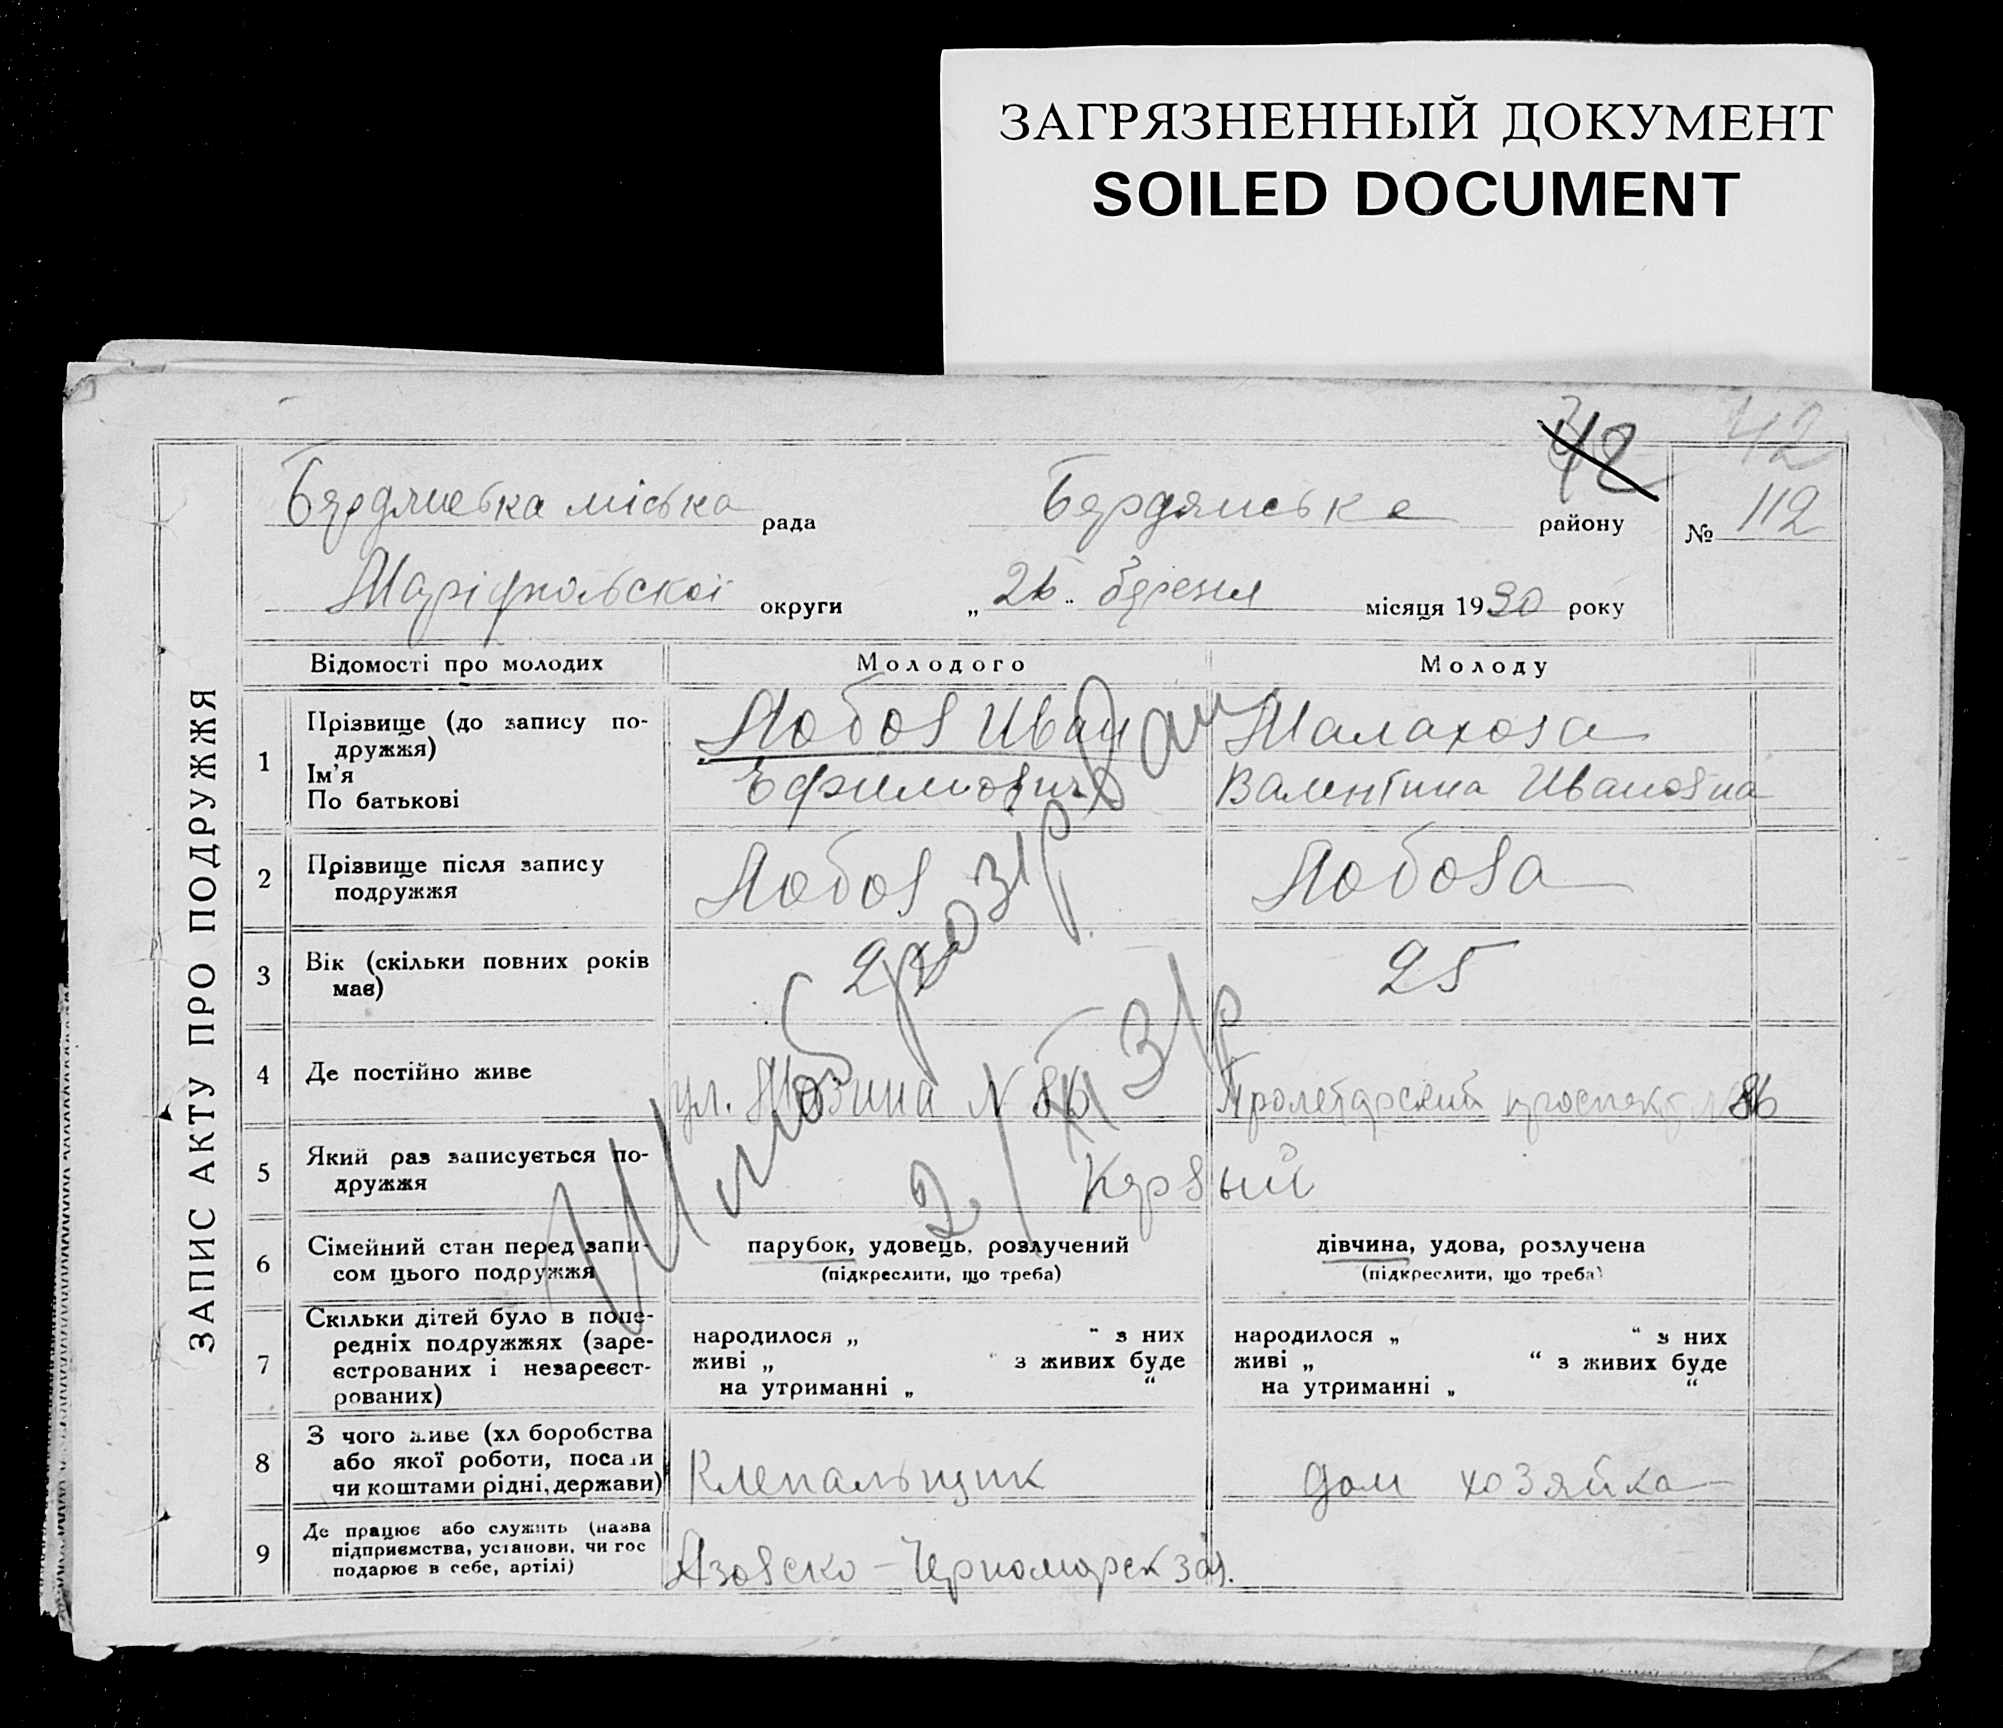 ЗАГРЯЗНЕННЫЙ ДОКУМЕНТ
SOILED DOCUMENT
42
42
Бердянська міська рада Бердянське району № 112
Маріупольскої округи „ 26 " березня місяця 1930 року
ЗАПИС АКТУ ПРО ПОДРУЖЖЯ
Відомості про молодих Молодого Молоду
1 Прізвище (до запису по-
дружжя)
Ім'я
По батькові
Лобов Иван
Ефимович
Малахова
Валентина Ивановна
2 Прізвище після запису
подружжя
Лобов
Лобова
3 Вік (скільки повних років
має)
25
4 Де постійно живе
ул. № 86
Пролетарский проспект № 86
5 Який раз записується по-
дружжя
Первый
6 Сімейний стан перед запи-
сом цього подружжя
парубок, удовець, розлучений
(підкреслити, що треба)
дівчина, удова, розлучена
(підкреслити, що треба)
7 Скільки дітей було в попе-
редніх подружжях (заре-
єстрованих і незареєст-
рованих)
народилося „ " з них
живі „ " з живих буде
на утриманні „ "
народилося „ " з них
живі „ " з живих буде
на утриманні „ "
8 З чого живе (хліборобства
або якої роботи, посади
чи коштами рідні, держави)
Клепальщик
дом хозяйка
9 Де працює або служить (назва
підприємства, установи, чи гос
подарює в себе, артілі)
Азовско-Черноморск зав.
Шлюб розірван
2/XI 31р